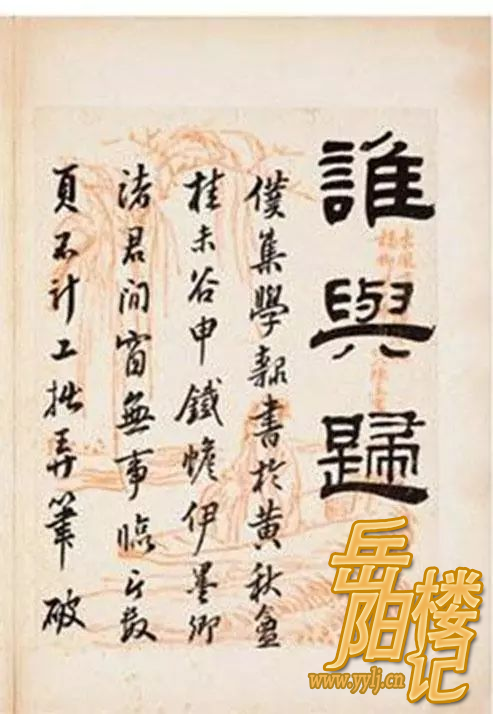 誰與歸
僕集學隸書於黃秋盦
桂未谷申鐵蟾伊墨卿
諸君間窗無事臨數
頁不計工拙弄筆破
岳阳楼记
www.yylj.cn